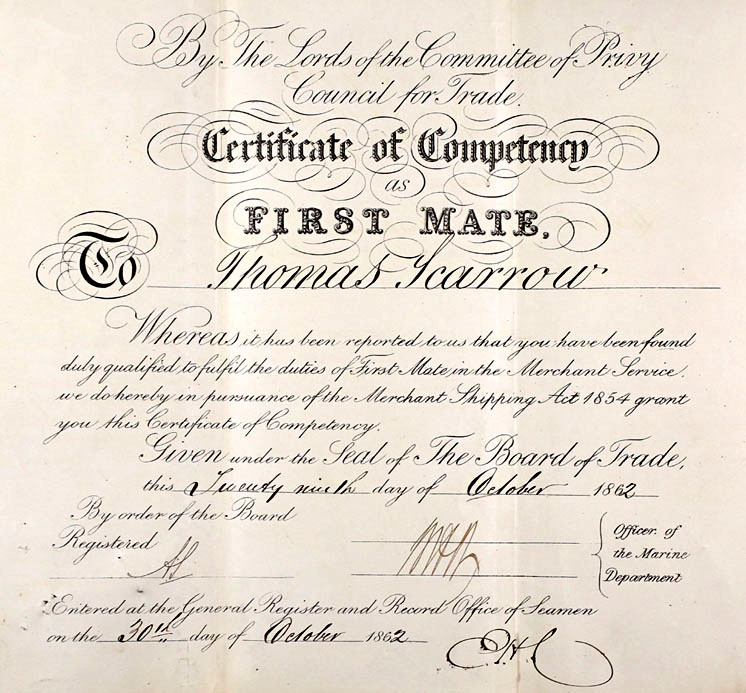 By The Lords of the Committee of Privy
Council for Trade.
Certificate of Competency
as
FIRST MATE.
To Thomas Scarrow
Whereas it has been reported to us that you have been found
duly qualified to fulfil the duties of First Mate in the Merchant Service.
we do hereby in pursuance of the Merchant Shipping Act 1854 grant
you this Certificate of Competency.
Given under the Seal of The Board of Trade,
this Twenty ninth day of October 1862
By order of the Board
Registered
Officer of
the Marine
Department
Entered at the General Register and Record Office of Seamen
on the 30th day of October 1862